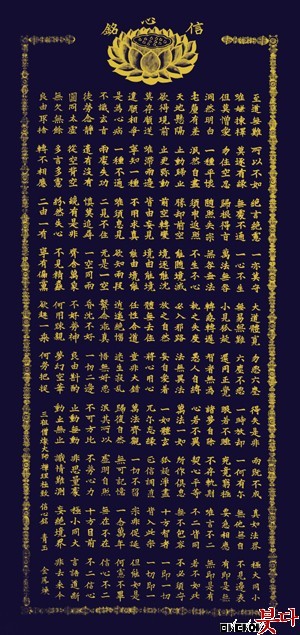 信心銘
至道無難
唯嫌揀擇
但莫憎愛
洞然明白
毫釐有差
天地懸隔
欲得現前
莫存順逆
違順相爭
是爲心病
不識玄旨
徒勞念靜
圓同太虛
無欠無餘
良由取捨
可以不如
莫逐有緣
勿住空忍
一種平懷
泯然自盡
止動歸止
止更彌動
唯滯兩邊
寧知一種
一種不通
兩處失功
遣有沒有
從空背空
多言多慮
轉不相應
絶言絶慮
無處不通
歸根得旨
隨照失宗
須臾返照
勝却前空
前空轉變
皆由妄見
不用求眞
唯須息見
二見不住
愼莫追尋
纔有是非
紛然失心
二由一有
一亦莫守
一心不生
萬法無咎
無咎無法
不生不心
能隨境滅
境逐能沈
境由能境
能由境能
欲知兩段
元是一空
一空同兩
齊含萬象
不見精麤
寧有偏黨
大道體寬
無易無難
小見狐疑
轉急轉遲
執之失度
必入邪路
放之自然
體無去住
任性合道
逍遙絶惱
繫念乖眞
昏沈不好
不好勞神
何用疎親
欲趣一乘
勿惡六塵
六塵不惡
還同正覺
智者無爲
愚人自縛
法無異法
妄自愛着
將心用心
豈非大錯
迷生寂亂
悟無好惡
一切二邊
良由斟酌
夢幻空華
何勞把捉
得失是非
一時放却
眼若不睡
諸夢自除
心若不異
萬法一如
一如體玄
兀爾忘緣
萬法齊觀
歸復自然
泯其所以
不可方比
止動無動
動止無止
兩旣不成
一何有爾
究竟窮極
不存軌則
契心平等
所作俱息
狐疑淨盡
正信調直
一切不留
無可記憶
虛明自照
不勞心力
非思量處
識情難測
眞如法界
無他無自
要急相應
唯言不二
不二皆同
無不包容
十方智者
皆入此宗
宗非促延
一念萬年
無在不在
十方目前
極小同大
妄絶境界
極大同小
不見邊表
有卽是無
無卽是有
若不如此
必不須守
一卽一切
一切卽一
但能如是
何慮不畢
信心不二
不二信心
言語道斷
非去來今
三祖僧璨大師 信心銘 靑玉 金
붓다